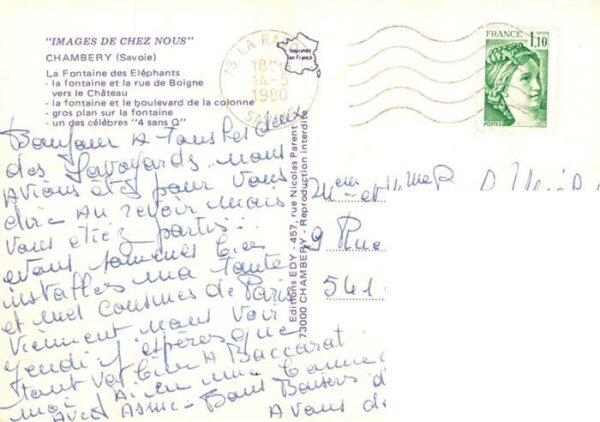 "IMAGES DE CHEZ NOUS"
CHAMBERY (Savoie)
La Fontaine des Eléphants
- la fontaine et la rue de Boigne
vers le Château
- la fontaine et le boulevard de la colonne
- gros plan sur la fontaine
- un des célèbres "4 sans Q"
73 LA RA
18
14-5
1980
SAV
Imprimée
en France
FRANCE
1,10
POSTES
Bonjour A tous les deux
des Savoyards nous
Avions été pour vous
dire Au revoir mais
vous étiez partis...
nous sommes bien
installés ma tante
et mes cousines de Paris
viennent nous voir
jeudi j'espères que
tout va bien A Baccarat
moi
Avec Bons Baisers d
Avons d
Editions EDY - 457, rue Nicolas Parent
73000 CHAMBERY - Reproduction interdite
et
9 Rue
541